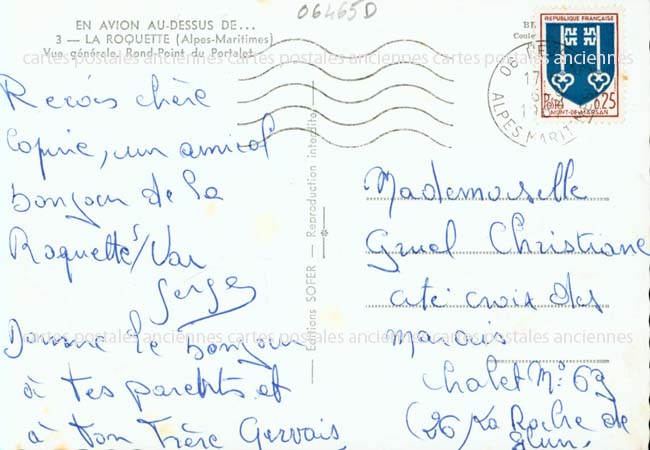 06465D
EN AVION AU-DESSUS DE...
3 — LA ROQUETTE (Alpes-Maritimes)
Vue générale, Rond-Point du Portalet
cartes postales anciennes cartes postales anciennes cartes postales anciennes
Reçois chère
Copine, un amical
bonjour de la
Roquette s/Var
Serge
Donne le bonjour
à tes parents et
à ton frère Gervais
Editions SOFER — Reproduction interdite
REPUBLIQUE FRANÇAISE
Postes 0,25
MONT-DE-MARSAN
17
ALPES MARIT
Mademoiselle
Gruel Christiane
cité croix des
marais
chalet No: 69
(26) La Roche de
Glun
cartes postales anciennes cartes postales anciennes cartes postales anciennes